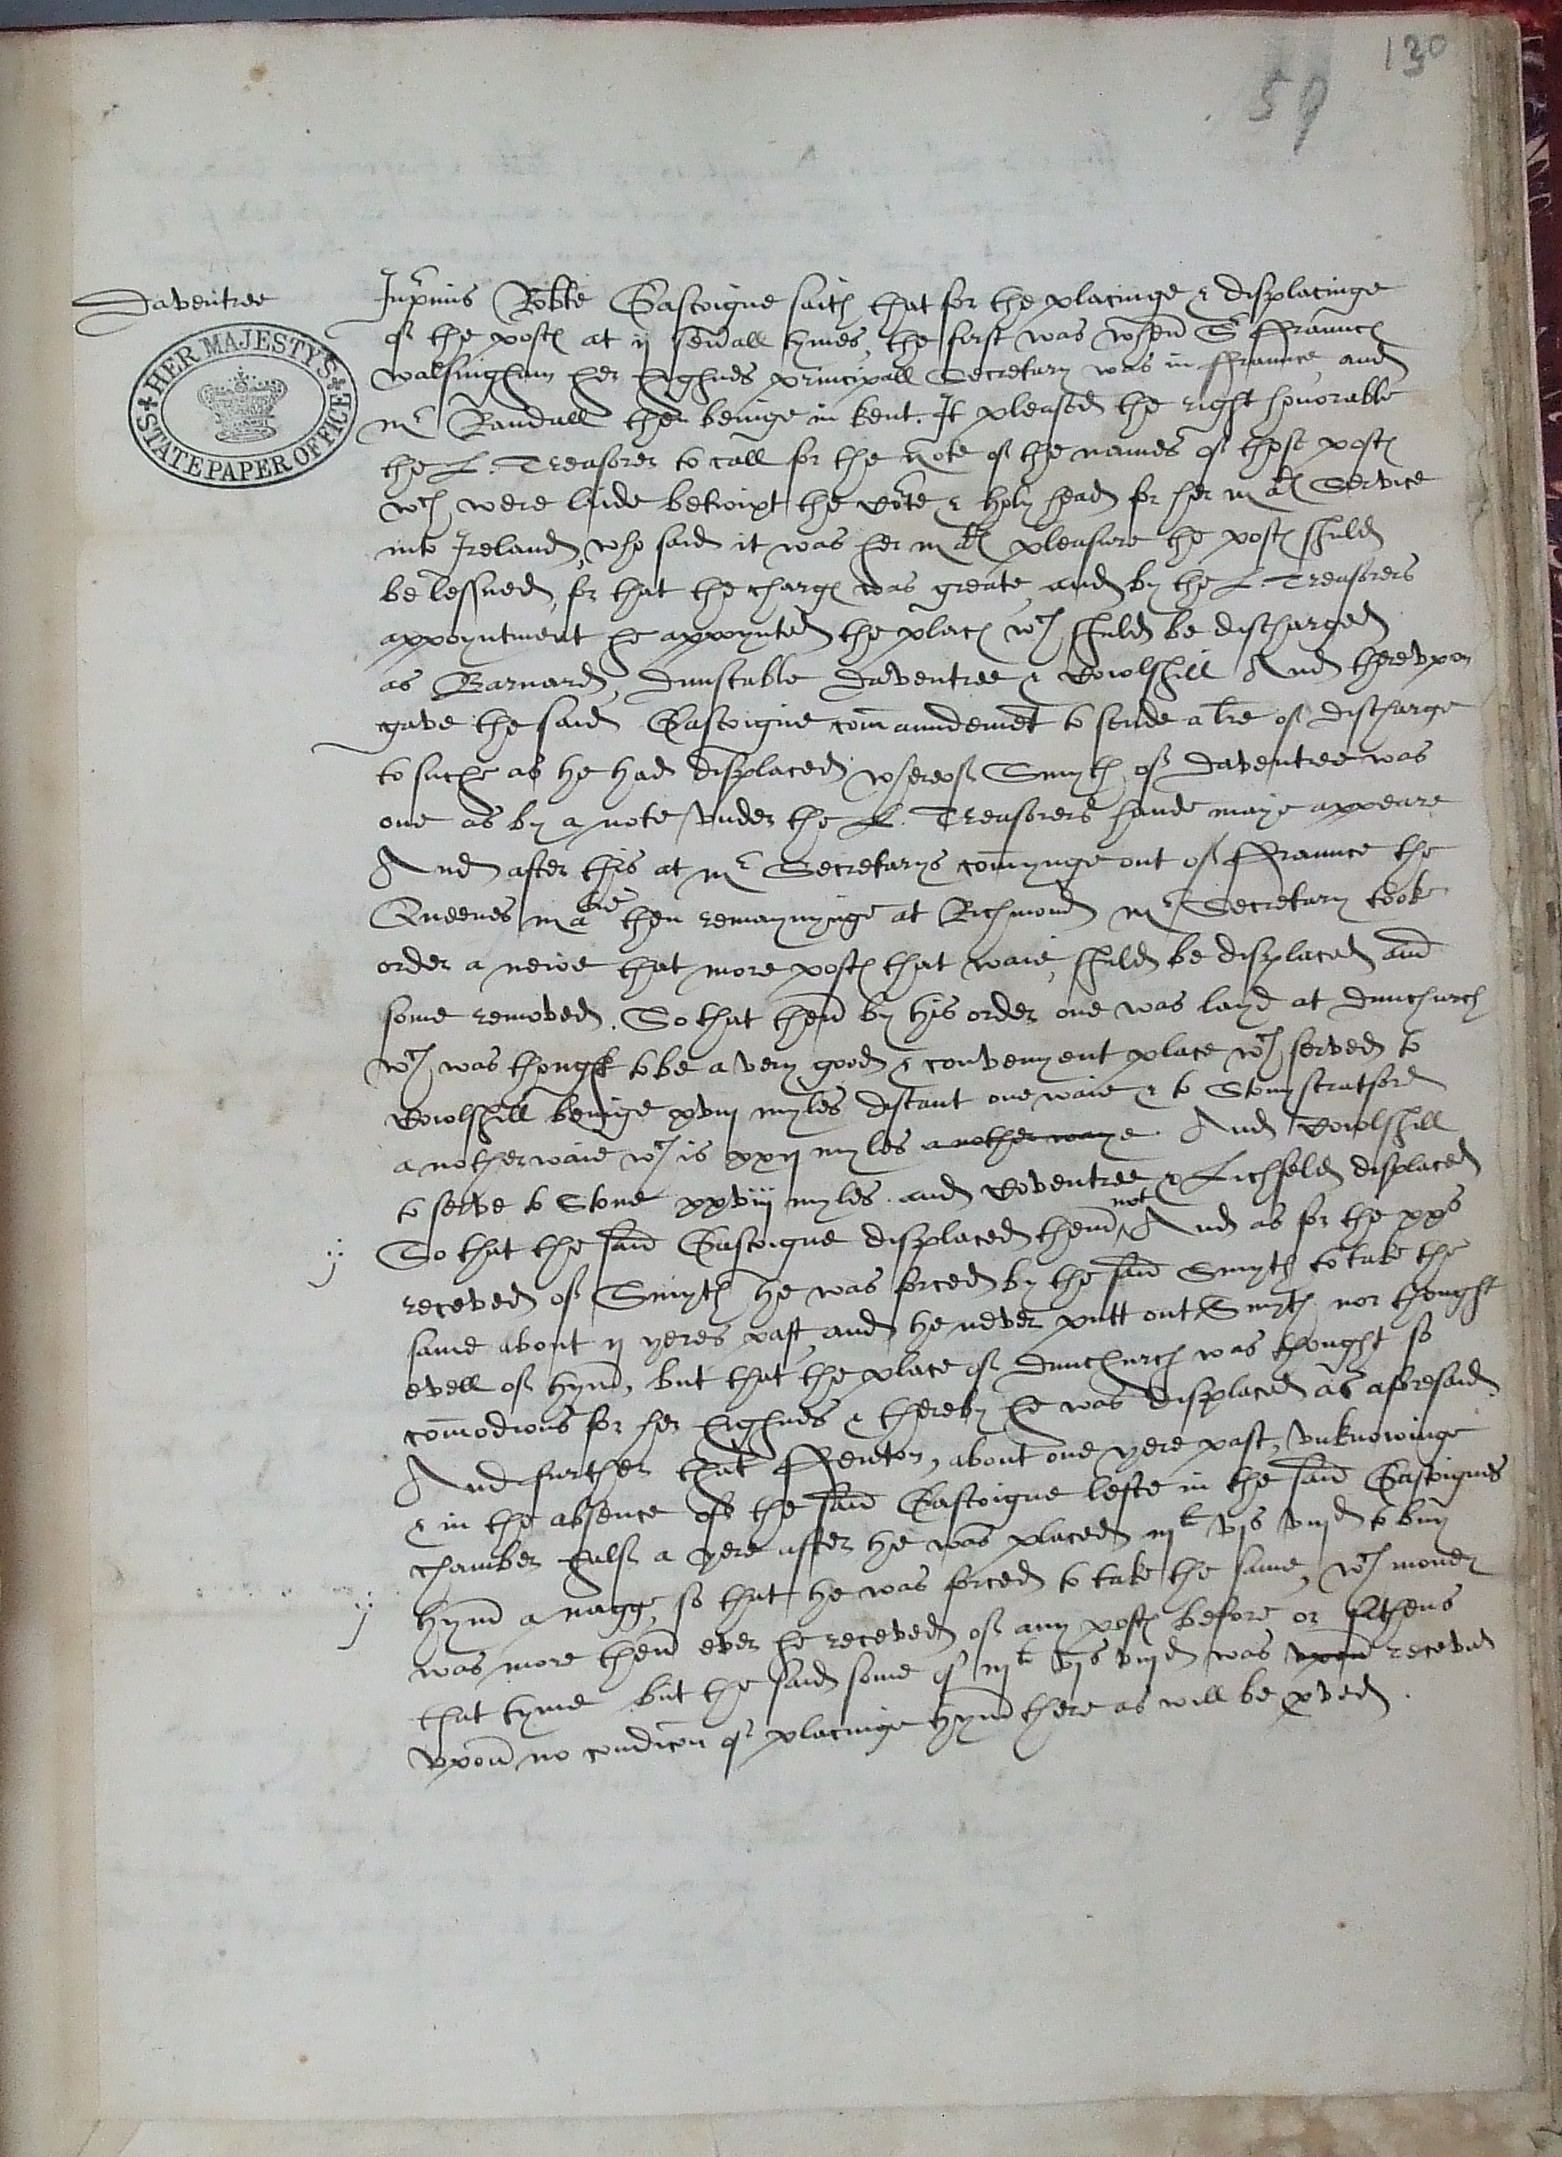 130
59
Daventree
HER MAJESTY'S
STATE PAPER OFFICE
Inprimis Robte Gascoigne saith that for the placinge & displacinge
of the postes at ij seuall tymes, the first was when Sr Ffraunces
walsingham her highnes principall Secretary was in Ffraunce, and
Mr Randall then beinge in kent. It pleased the right honorable
the L. Treasorer to call for the note of the names of those postes
wch were laide betwixt the Corte & Holy head for her mates Service
into Ireland, who said it was her mates pleasure the postes shuld
be lessned, for that the charges was greate, and by the L. Treasorers
appoyntment he appoynted the places wch shuld be discharged
as Barnard, Dunstable Daventree & Cowlshill And therevpon
gave the said Gascoigne comaundemet to sende a lre of discharge
to suche as he had displaced, whereof Smyth of Daventree was
one as by a note vnder the L. Treasorers hande maye appeare
And after this at Mr Secretarys comynge out of Ffraunce the
Queenes matie then remaynynge at Richmond Mr Secretary tooke
order a newe that more postes that waie, shuld be displaced and
some removed. So that then by his order one was layd at Dunchurch
wch was thought to be a very good & convenyent place wch served to
Cowlshill beinge xviij myles distant one waie & to Stonistratford
a nother waie wch is xxij myles a nother waye. And Cowlshill
to serve to Stone xxviij myles. and Coventree & Lichfeld displaced
ij So that the said Gascoigne displaced them not And as for the xxs
receved of Smyth he was forced by the said Smyth to take the
same about ij yeres past, and he never putt out Smyth nor thought
evell of hym, but that the place of Dunchurch was thought so
comodious for her highnes & thereby he was displaced as aforesaid
And further that Ffenton, about one yere past, vnknowinge
& in the absence of the said Gascoigne lefte in the said Gascoignes
chamber half a yere after he was placed iijl vjs viijd to buy
ij hym a nagge, so that he was forced to take the same, wch money
was more then ever he receved of any postes before or sithens
that tyme but the said some of iijl vjs viijd was vpon receved
vpon no condicon of placinge hym there as will be pved.